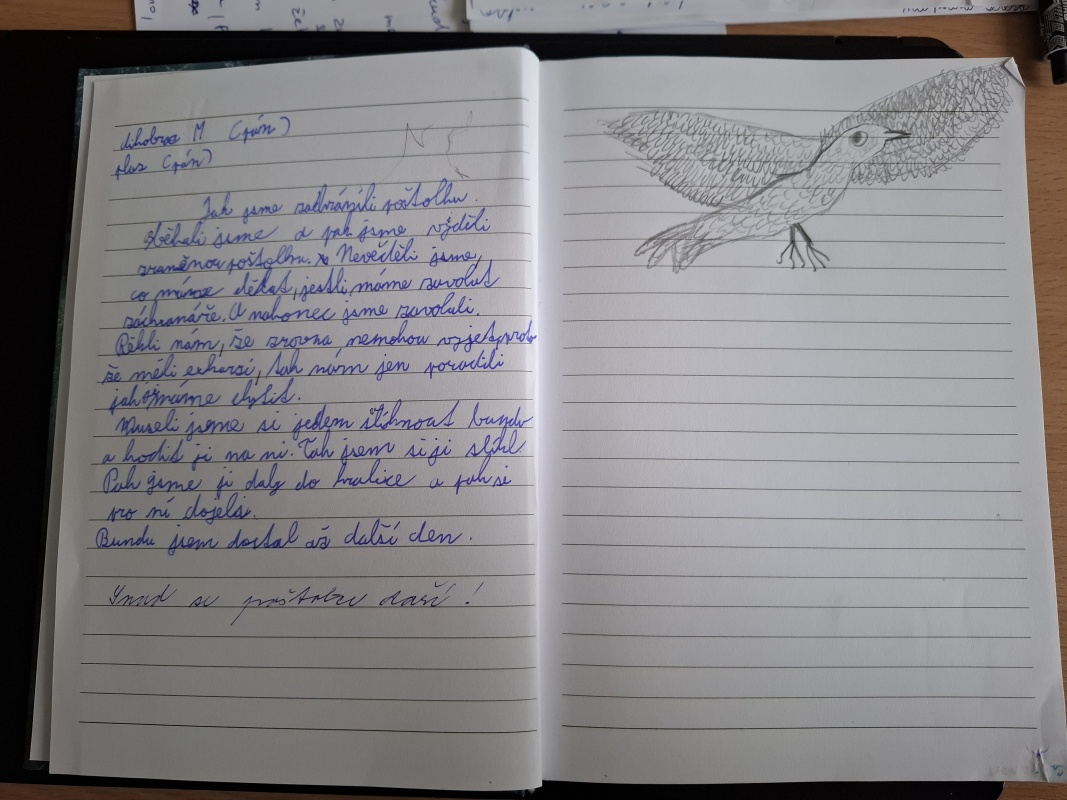 dikobraz M (pán)
plaz (pán)
Jak jsme zachránili poštolku.
Běhali jsme a pak jsme viděli
zraněnou poštolku. Nevěděli jsme,
co máme dělat, jestli máme zavolat
záchranáře. A nakonec jsme zavolali.
Řekli nám, že zrovna nemohou vyjet, proto
že měli exkurzi, tak nám jen poradili
jak máme chytit.
Museli jsme si jedem stihnout bundu
a hodit ji na ni. Tak jsem si ji slíkl
Pak jsme ji daly do kralice a pak si
pro ní dojeli.
Bundu jsem dostal až další den.
Snad se poštolce daří !